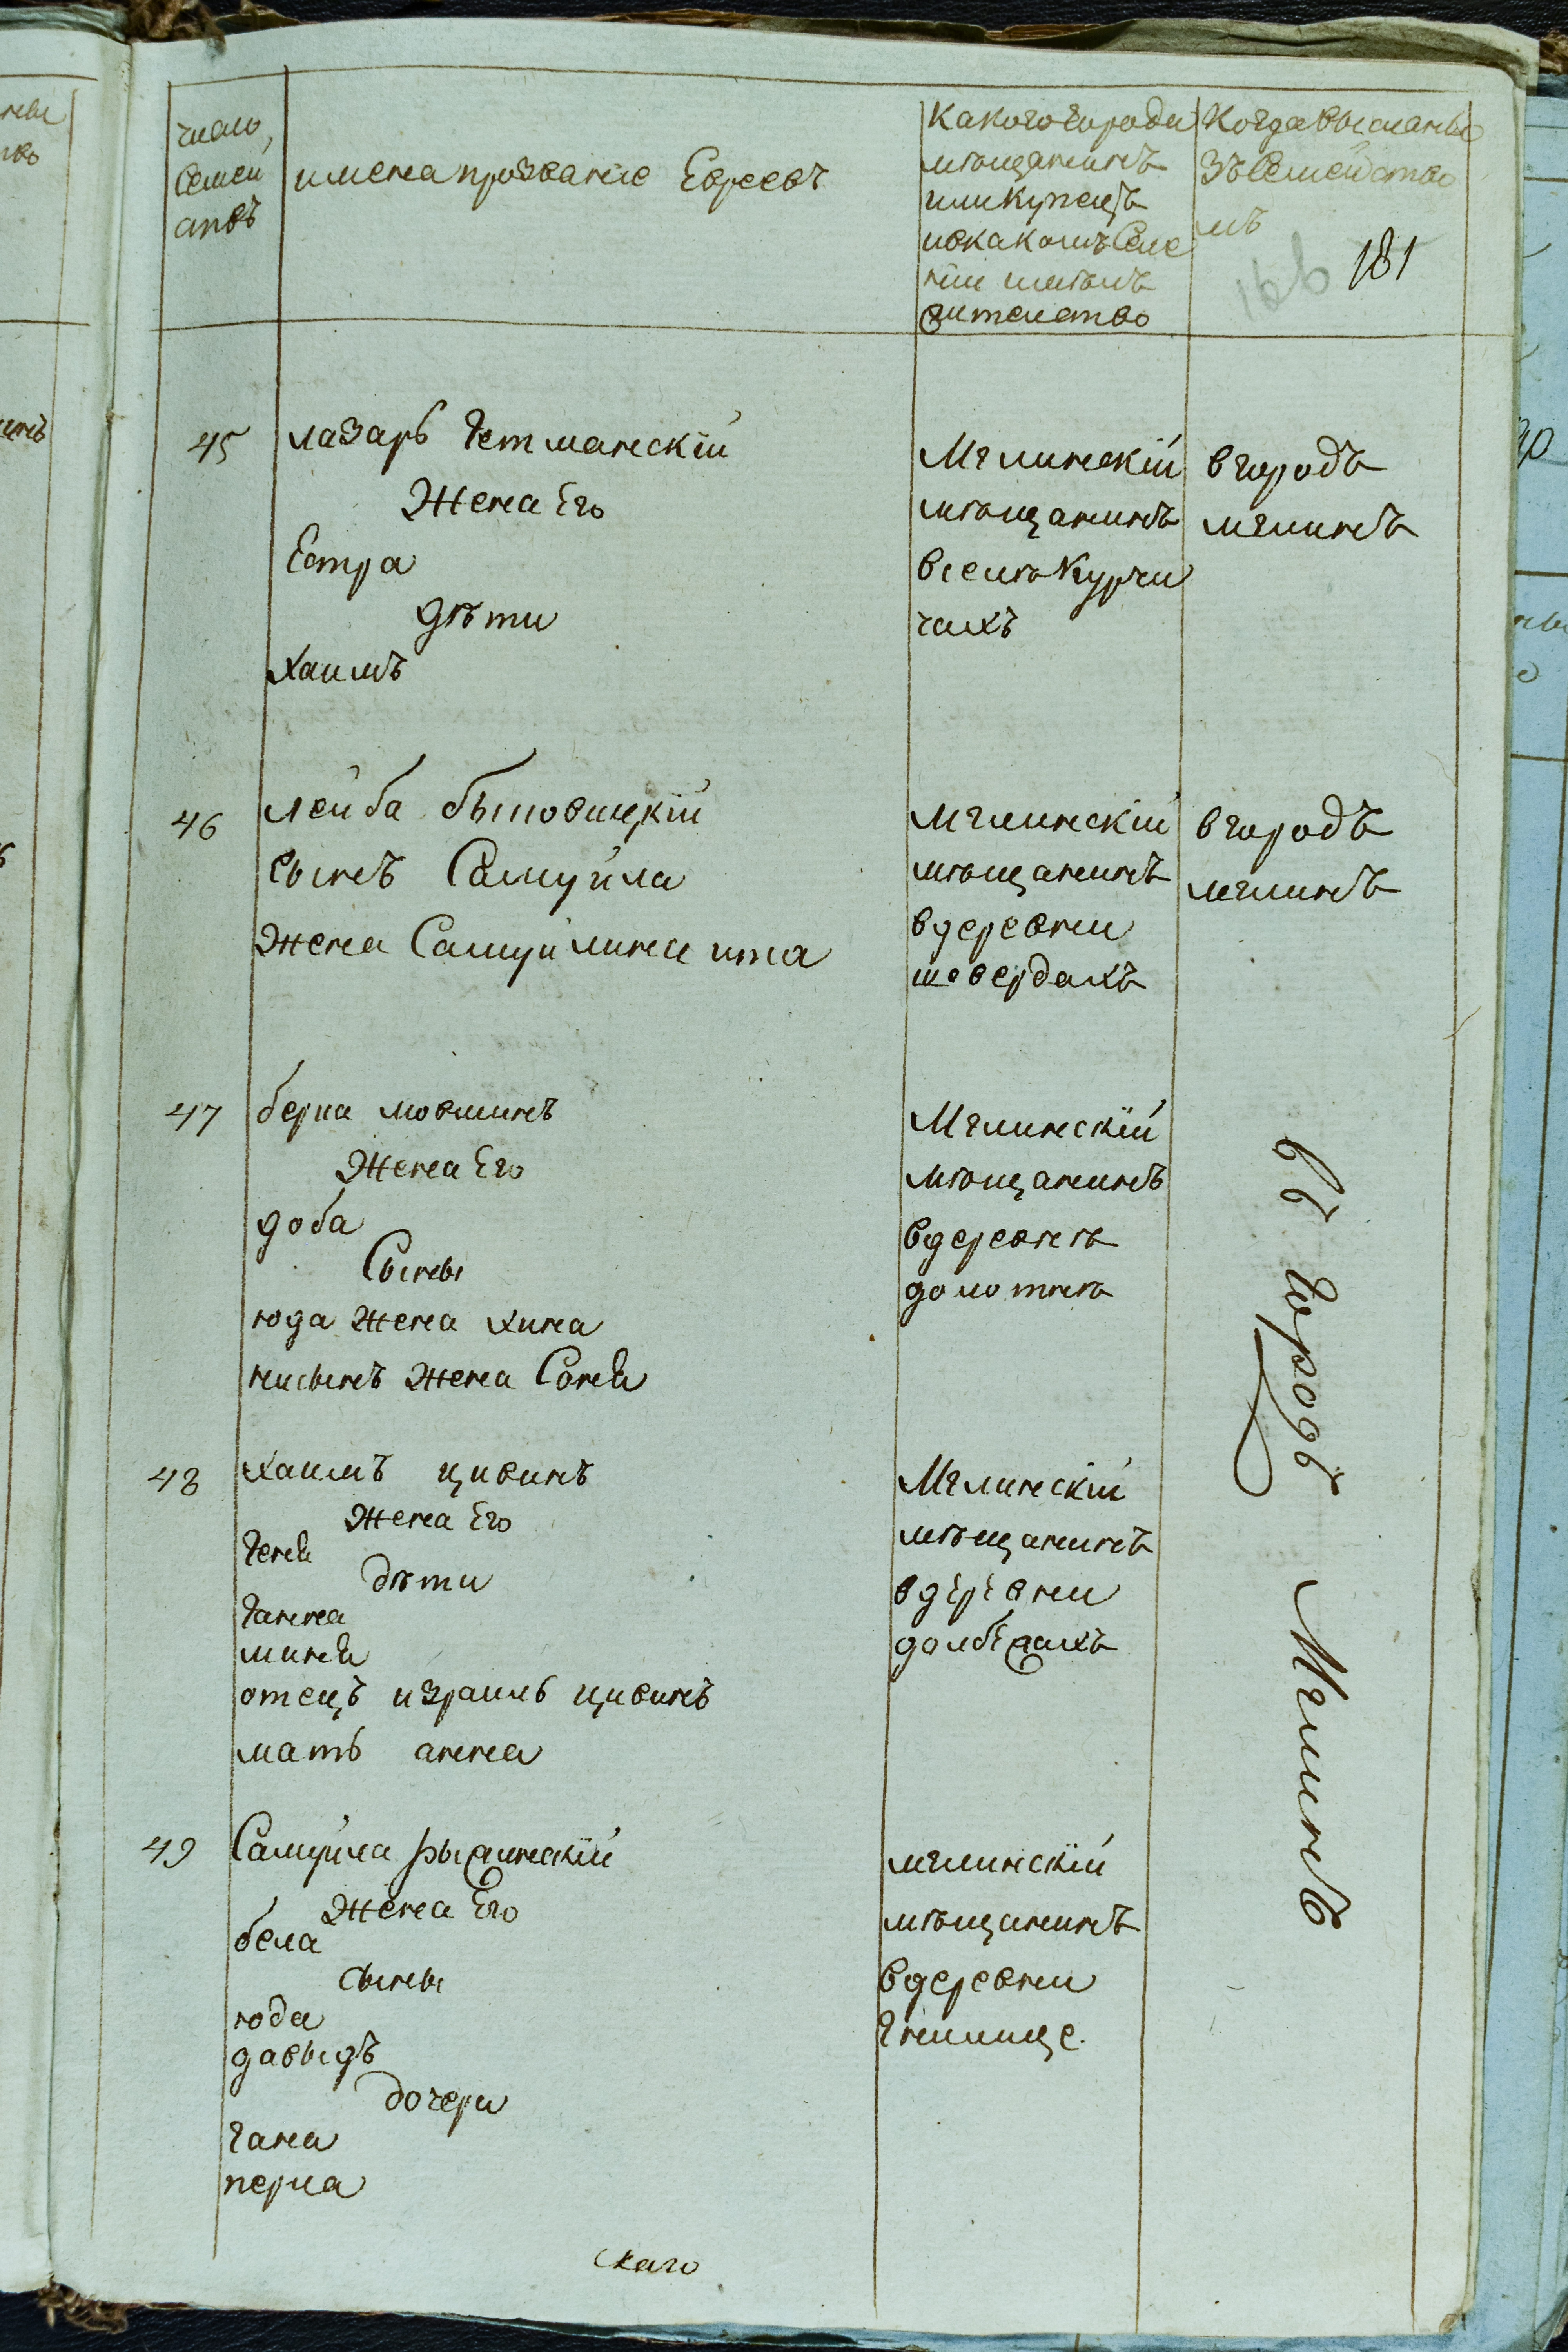 число
Семей
ствъ
имена прозвание Евреевъ
Какого города
мѣщанинъ
или купецъ
и в какомъ Селе
нии имѣлъ
жителство
Когда высланы
зъ Семейство
мъ
166
181
45
лазарь гетманскій
Жена Его
Естра
дѣти
Хаимъ
Мглинскій
мѣщанинъ
в селѣ Курчи
чахъ
в городъ
мглинъ
46
лейба быховицкій
сынъ Самуйла
жена Самуйлина ита
мглинскій
мѣщанинъ
в деревни
шевердахъ
в городъ
мглинъ
47
берка мовшинъ
Жена Его
доба
Сыны
юда жена хина
нисынъ жена Соня
Мглинскій
мѣщанинъ
в деревнѣ
долотнѣ
въ городъ Мглинъ
48
хаимъ цивинъ
Жена Его
геня
дѣти
ганна
миня
отецъ израиль цивинъ
мать анна
Мглинскій
мѣщанинъ
в деревни
49
Самуйла
Жена Его
бела
сыны
юда
давыдъ
дочери
гана
перла
мглинскій
мѣщанинъ
в деревни
гнилище.
скаго